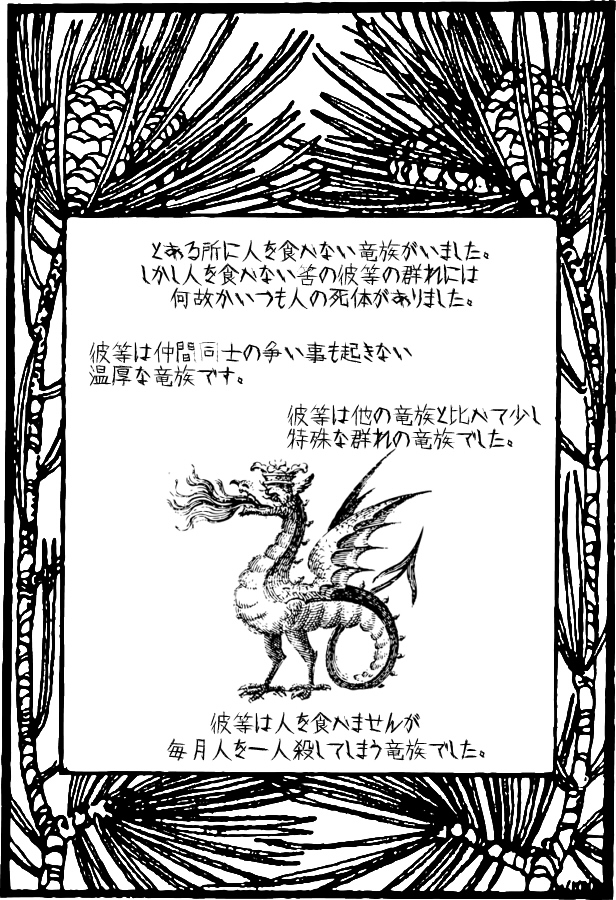 とある所に人を食べない竜族がいました。
しかし人を食べない筈の彼等の群れには
何故かいつも人の死体がありました。
彼等は仲間同士の争い事も起きない
温厚な竜族です。
彼等は他の竜族と比べて少し
特殊な群れの竜族でした。
彼等は人を食べませんが
毎月人を一人殺してしまう竜族でした。